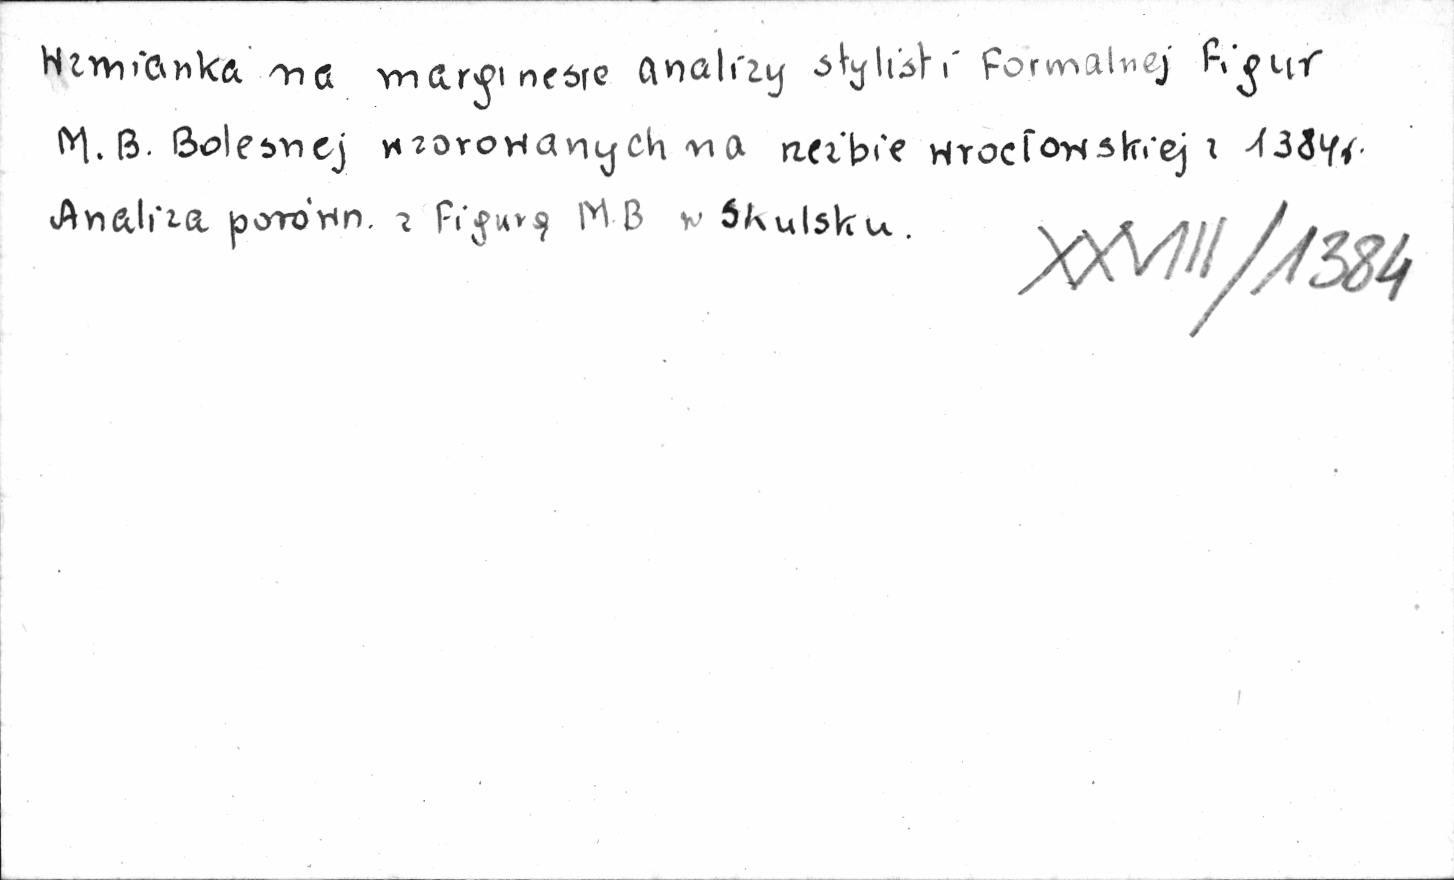 Wzmianka na marginesie analizy stylist i formalnej figur
M. B. Bolesnej wzorowanych na rzeźbie wrocłowskiej z 1384r.
Analiza porówn. z figurą M.B w Skulsku.
XXVIII/1384